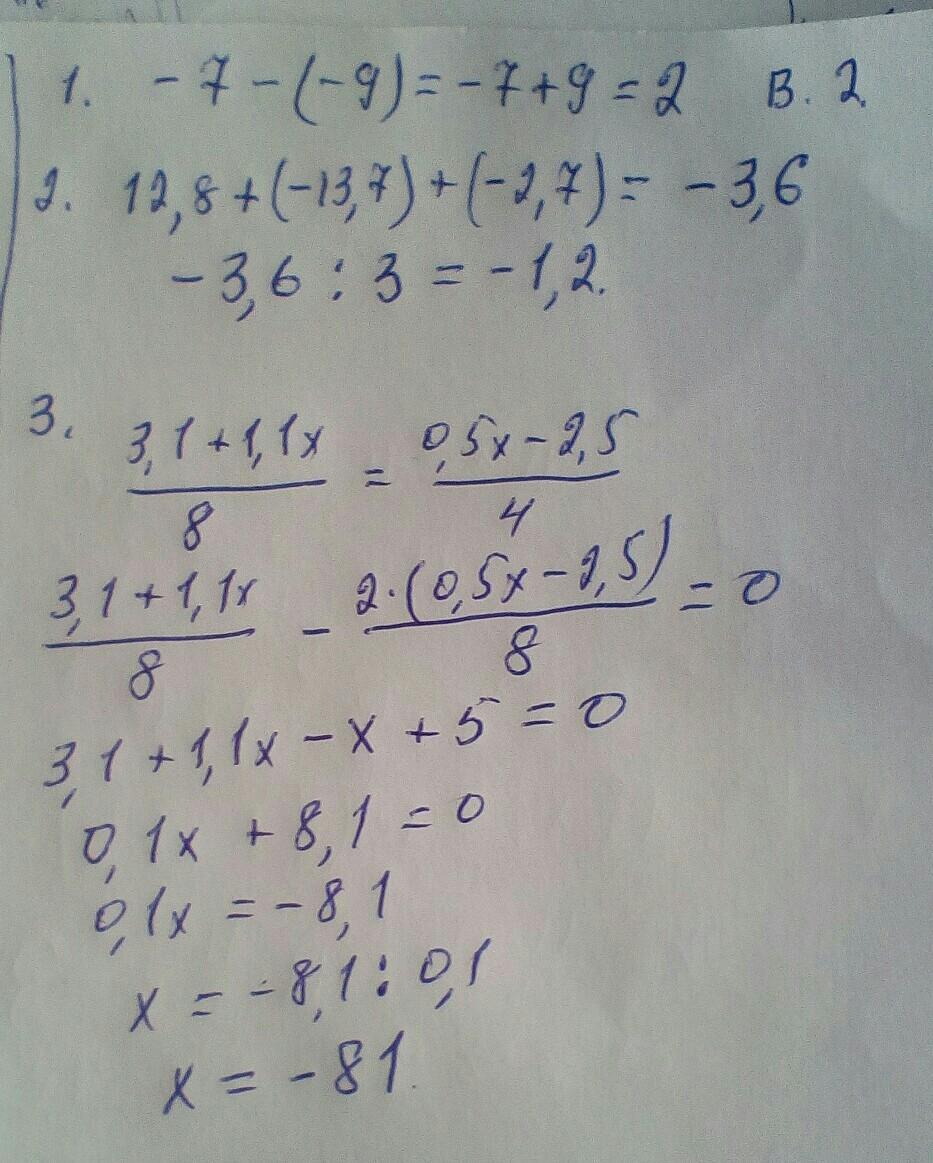 1. -7-(-9)=-7+9=2 В. 2
2. 12,8+(-13,7)+(-2,7)= -3,6
-3,6 : 3 = -1,2.
3. 3,1+1,1x / 8 = 0,5x-2,5 / 4
3,1+1,1x / 8 - 2·(0,5x-2,5) / 8 = 0
3,1+1,1x-x+5=0
0,1x+8,1=0
0,1x=-8,1
x=-8,1:0,1
x=-81.